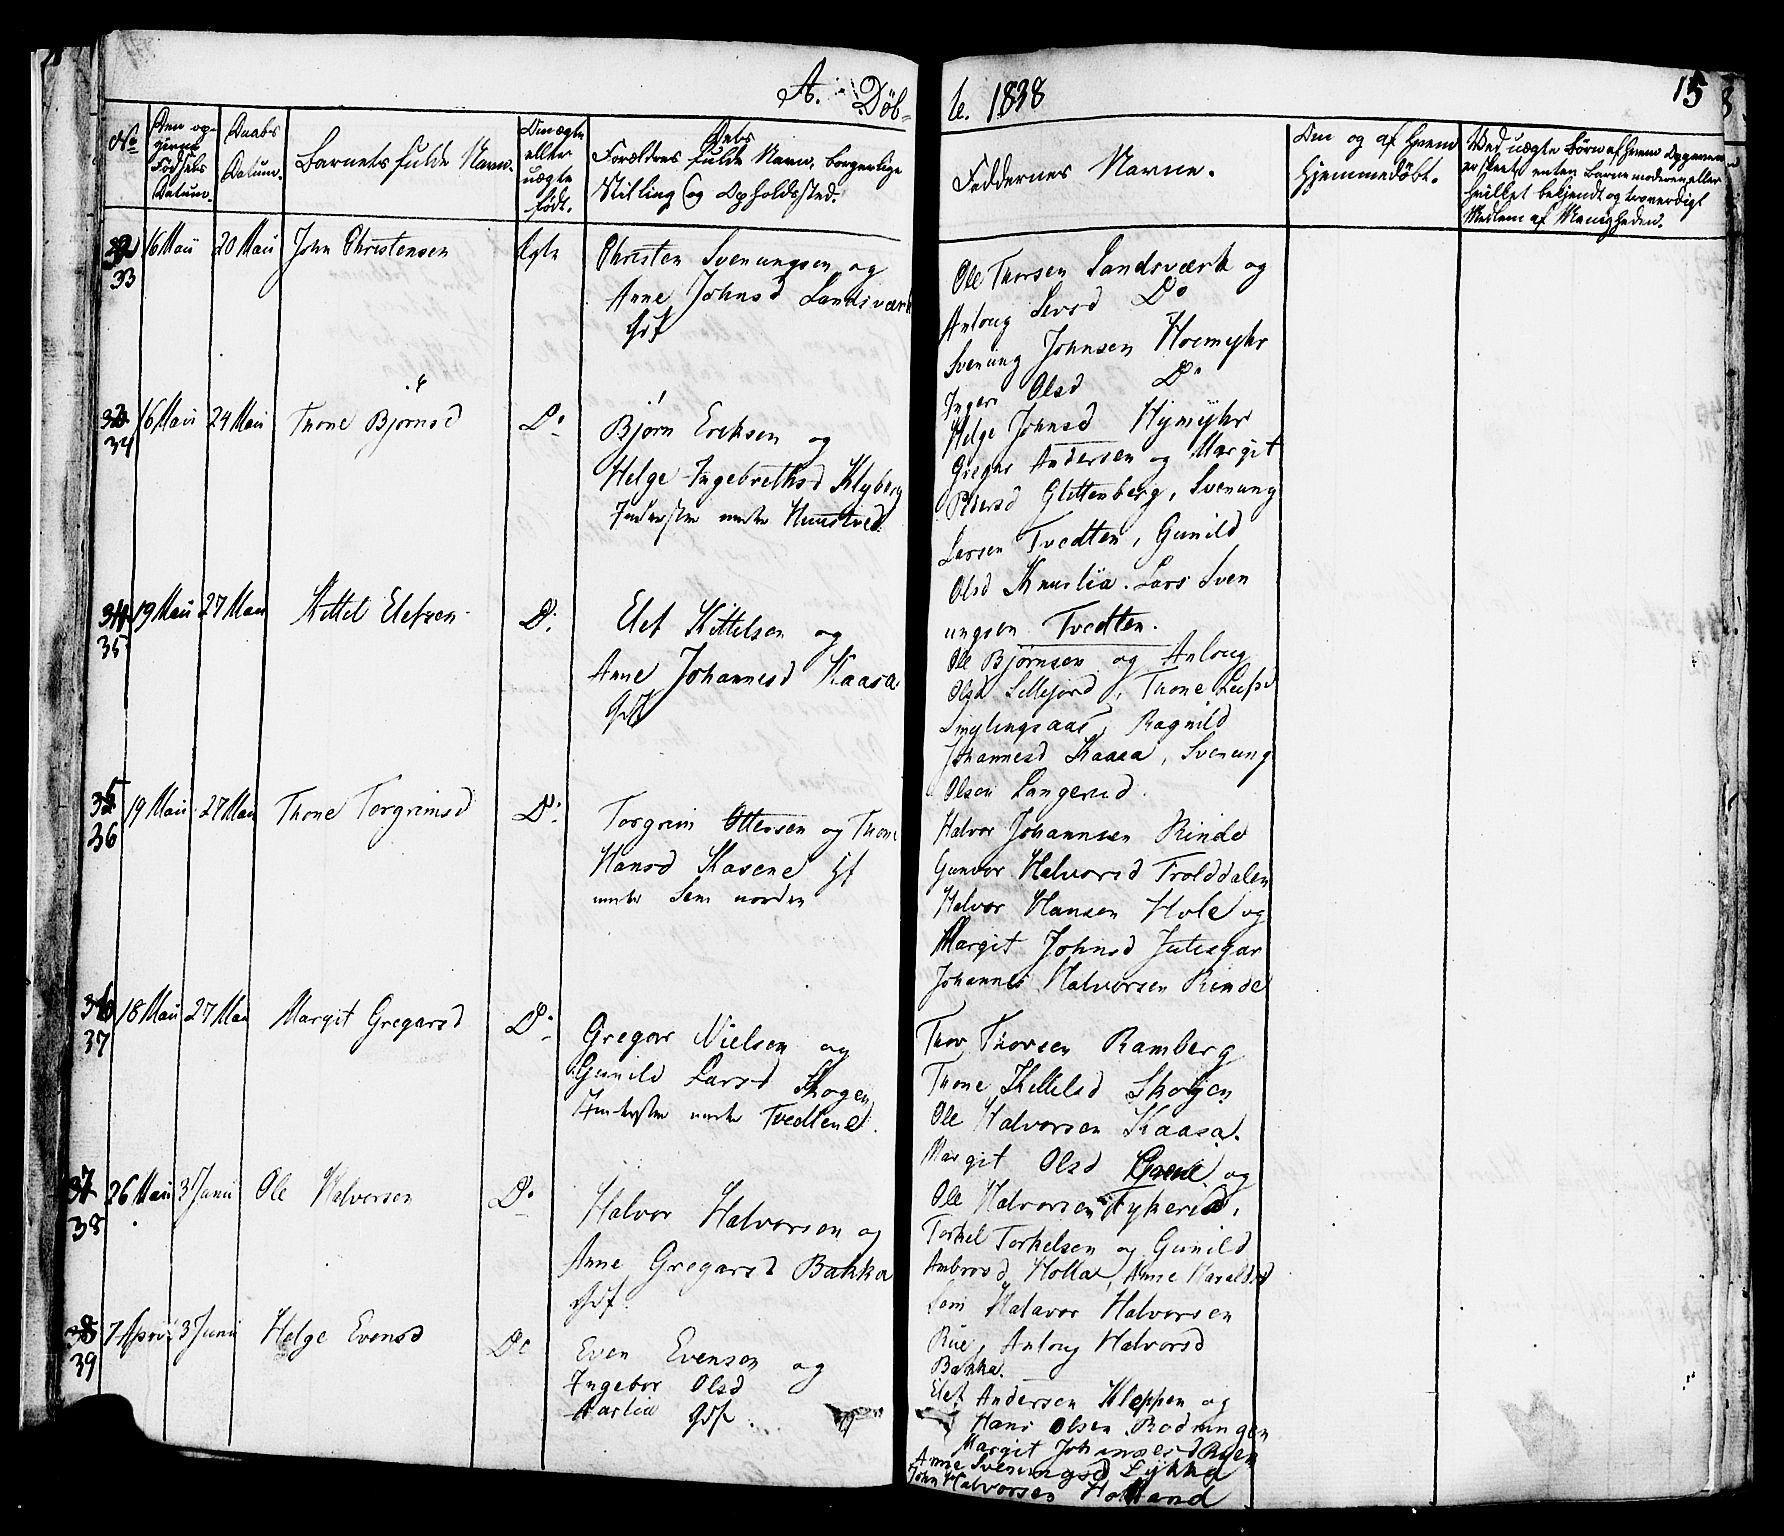 A. Døb-
te. 1838
15
No
Den op-
givne
Fødsels
Datum.
Daabs
Datum.
Barnets fulde Navn.
Om ægte
eller
uægte
født.
Forældres fulde Navn, borgerlige
Stilling og Opholdssted.
Faddernes Navne.
Om og af Hvem
Hjemmedøbt.
Ved uægte Børn af Hvem Opgaven
er skeet, enten Barnemoderen eller
hvilket bekjendt og troværdigt
Medlem af Menigheden.
33
16 Maii
20 Maii
John Christensen
Egte
Christen Svenungsen og
Anne Johnsd Landsværk
Gdf
Ole Thorsen Landsværk og
Anloug Sevsd Do
Svenung Johnsen Hoemyhr
Ingeri Olsd Do
Helge Johnsd Hymyhr
34
16 Maii
24 Maii
Thone Bjørnsd
Do
Bjørn Eriksen og
Helge Ingebrethsd Klyberg
Inderster under Nuustved
Gregar Andersen og Margit
Pedersd Glittenberg, Svenung
Larsen Tvedten, Gunild
Olsd Knuslia. Lars Sven
ungsen Tvedten.
35
19 Maii
27 Maii
Kittel Elefsen
Do
Elef Kittelsen og
Anne Johannesd Kaasa
Gdf
Ole Bjørnsen og Anloug
Olsd Lillejord, Thone Leifsd
Lynglingsaas, Ragnild
Johannesd Kaasa, Svenung
Olsen Langerud.
36
19 Maii
27 Maii
Thone Torgrimsd
Do
Torgrim Ottersen og Thone
Hansd Kasene Hf
under Sem norden
Halvor Johannsen Rinde
Gunvor Halvorsd Trolddalen
Halvor Hansen Hole og
Margit Johnsd Jutesgar
Johannes Halvorsen Rinde
37
18 Maii
27 Maii
Margit Gregarsd
Do
Gregar Nielsen og
Gunild Larsd Skogen
Inderster under Tvedtene.
Thor Thorsen Ramberg
Thone Kittilsd Skogen
Ole Halvorsen Kaasa.
Margit Olsd Grene og
Ole Halvorsen Fykerud,
38
26 Maii
3 Junii
Ole Halvorsen
Do
Halvor Halvorsen og
Anne Gregarsd Bakka
Gdf.
Torkel Torkelsen og Gunild
Ambrosd Holla, Anne Haraldsd
Sem Halavor Halvorsen
Rue, Anloug Halvorsd
Bakka.
39
7 April
3 Junii
Helge Evensd
Do
Even Evensen og
Ingebor Olsd
Aaslia Gdf.
Elef Andersen Kleppen og
Hans Olsen Rodningen
Margit Johannesd Ruen
Anne Svenungsd Lykka
John Halvorsen Holland